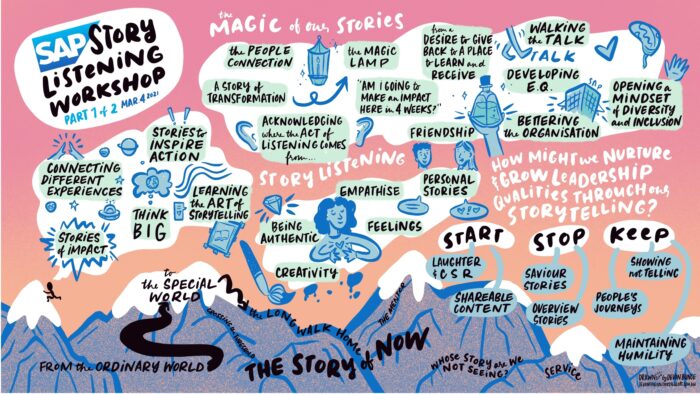 SAP STORY
LISTENING
WORKSHOP
PART 1 of 2 MAR 4 2021
the MAGIC of our STORIES
the PEOPLE
CONNECTION
the MAGIC
LAMP
from a
DESIRE to GIVE
BACK to A PLACE
to LEARN and
RECEIVE
WALKING
the TALK
TALK
A STORY of
TRANSFORMATION
"AM I GOING to
MAKE an IMPACT
HERE in 4 WEEKS?"
DEVELOPING
E.Q.
SAP
OPENING a
MINDSET
of DIVERSITY
and INCLUSION
ACKNOWLEDGING
where the ACT of
LISTENING COMES
from...
FRIENDSHIP
BETTERING
the ORGANISATION
STORIES to
INSPIRE
ACTION
CONNECTING
DIFFERENT
EXPERIENCES
THINK
BIG
LEARNING
the ART of
STORYTELLING
STORIES
of IMPACT
STORY LISTENING
EMPATHISE
PERSONAL
STORIES
BEING
AUTHENTIC
FEELINGS
CREATIVITY
HOW MIGHT we NURTURE
& GROW LEADERSHIP
QUALITIES THROUGH our
STORYTELLING?
START
LAUGHTER
& CSR
SHAREABLE
CONTENT
STOP
SAVIOUR
STORIES
OVERVIEW
STORIES
KEEP
SHOWING
not TELLING
PEOPLE'S
JOURNEYS
MAINTAINING
HUMILITY
to
the SPECIAL
WORLD
FROM the ORDINARY WORLD
the LONG WALK HOME
THE MENTOR
THE STORY of NOW
WHOSE STORY are WE
NOT SEEING?
SERVICE